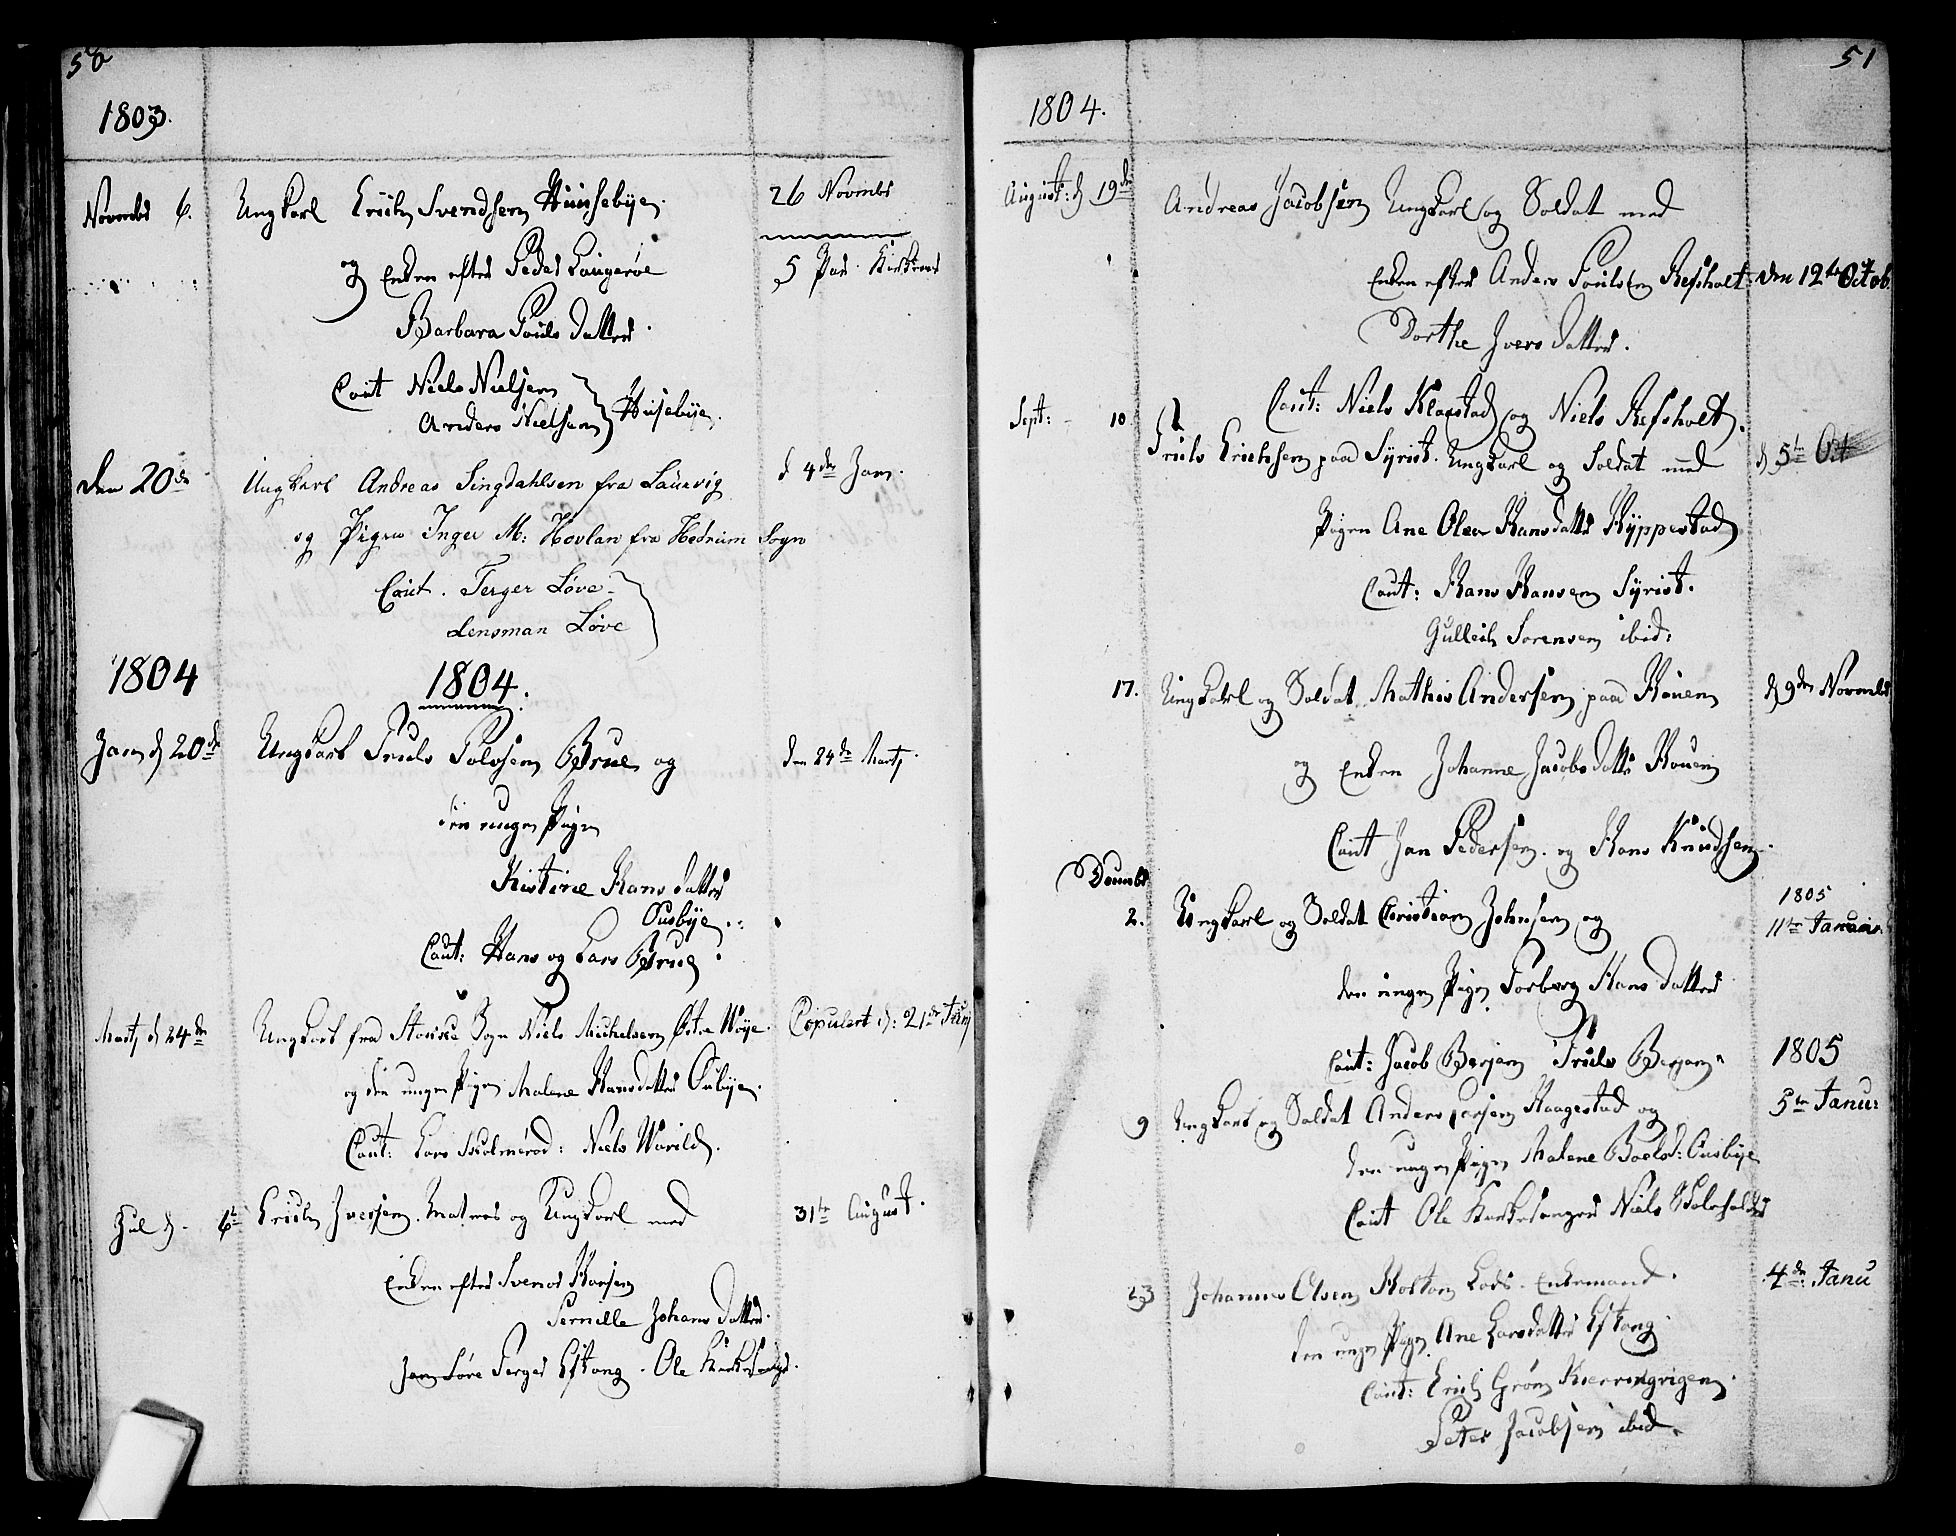 50
1803.
Novembr 6. Ungkarl Erich Svendsen Huusebÿe. 26 Novembr
og Enken efter Peder Laugerøe 5 Par
Barbara Pouls datter.
Caut Niels Nielsen
Anders Nielsen Husebye.
den 20de Ungkarl Andreas Singdahlsen fra Laurvig d 4de Jan.
og Pigen Inger M: Hovlan fra Hedrum Sogn
Caut. Terger Løve
Lensman Løve
1804 1804.
Jan d 20de Ungkarl Truls Polvsen Brue og den 24de Martj
den unge Pige
Kistine Hans datter
Ousbye
Caut: Hans og Lars Brue.
Martj d 24de Ungkarl fra Sogn Niels Michelsen Østre Copulert d: 21de Junj
og den unge Pige Malene Hansdatter Ousbye.
Caut: Lars Skolmerød: Niels Warild.
Jul d. 6te Erich Iversen. Matros og Ungkarl med 31te August.
Enken efter Svenos Hansen
Pernille Johans datter.
Jan Løve Terger Eftang. Ole Kirkesanger.
51
1804.
August: d 19de Andreas Jacobsen Ungkarl og Soldat med
Enken efter Anders Poulsen Refsholt den 12te Octob.
Dorthe Ivers datter.
Caut: Niels Klaastad og Niels Refsholt.
Sept: 10 Truls Erichsen paa Syrist. Ungkarl og Soldat med d 5te Oct
Pigen Ane Olea Hansdatter Hÿppestad
Caut: Hans Hansen Syrist.
Gulleich Sorensen ibid:
17. Ungkarl og Soldat Mathis Andersen paa Houen d 9de Novembr
og Enken Johanne Jacobs datter Houen
Caut Jan Pedersen. og Hans Knudsen.
Decembr
1805
2. Ungkarl og Soldat Christian Johnsen og 11te Januar.
den unge Pige Torberg Hans datter
Caut: Jacob Berjan Truls Berjan. 1805
9 Ungkarl og Soldat Anders Haagestad og 5te Janu:
den unge Pige Malene Boelsd: Ousbye
Caut Ole Kirkesanger Niels
23 Johannes Olsen Holtan Lods. Enkemand. 4de Janu
den unge Pige Ane Larsdatter Eftang
Caut: Erich Grøn Kierringvigen
Peter Jacobsen ibid.